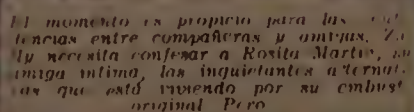 El momento es propicio para las
dencias entre compañeras y amigas. Za
ly necesita confesar a Rosita Martin, su
amiga intima, las inquietantes alternat
as que está viviendo por su embust
original Pero